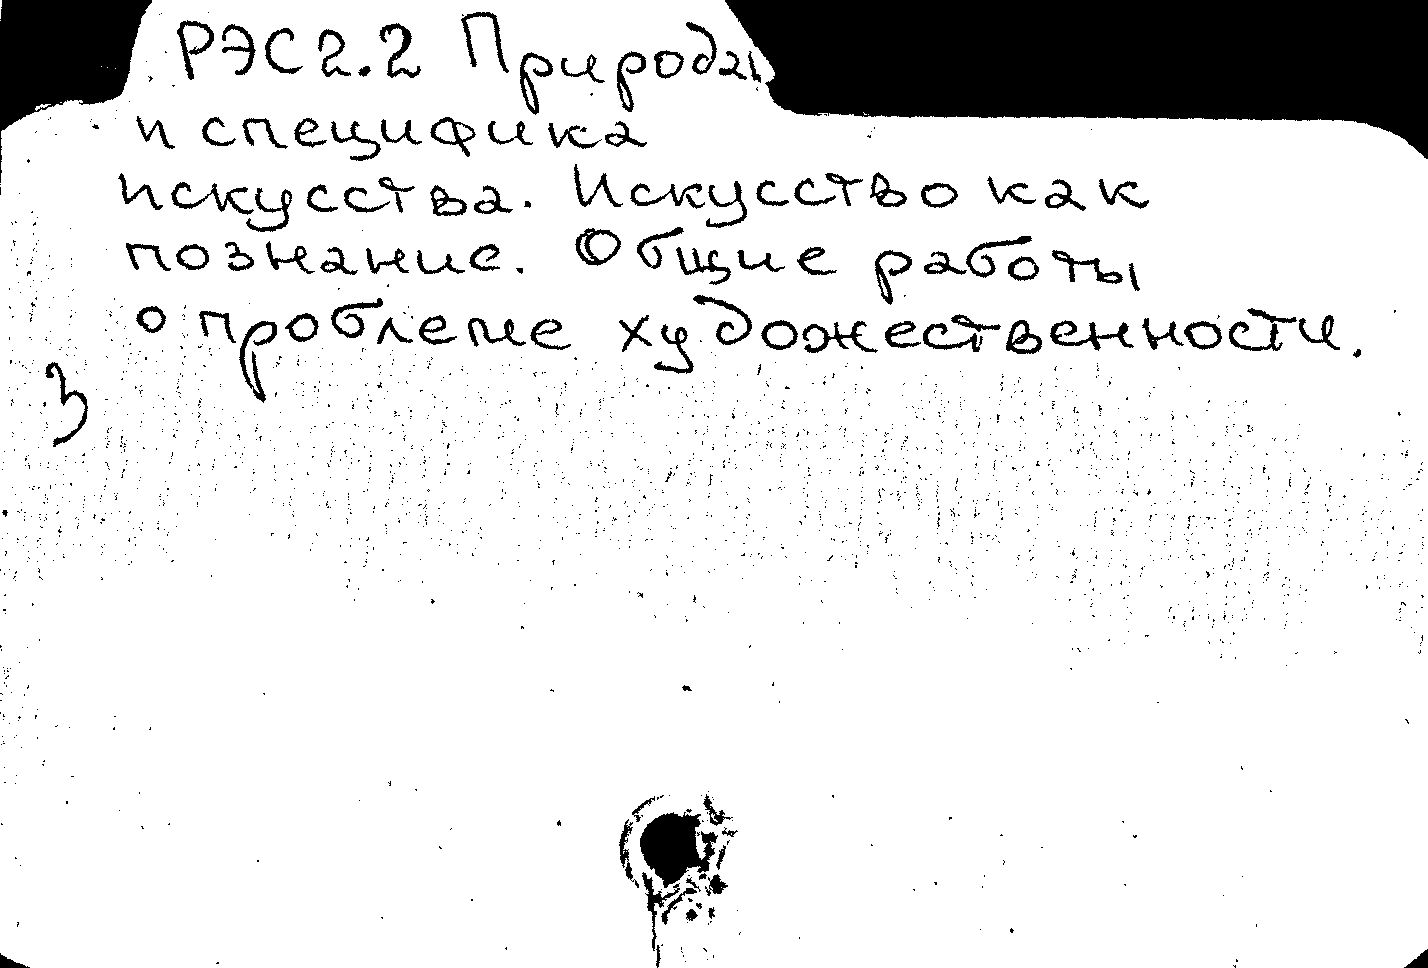 РЭС2.2 Природа
и специфика
искусства. Искусство как
познание. Общие работы
о проблеме художественности.